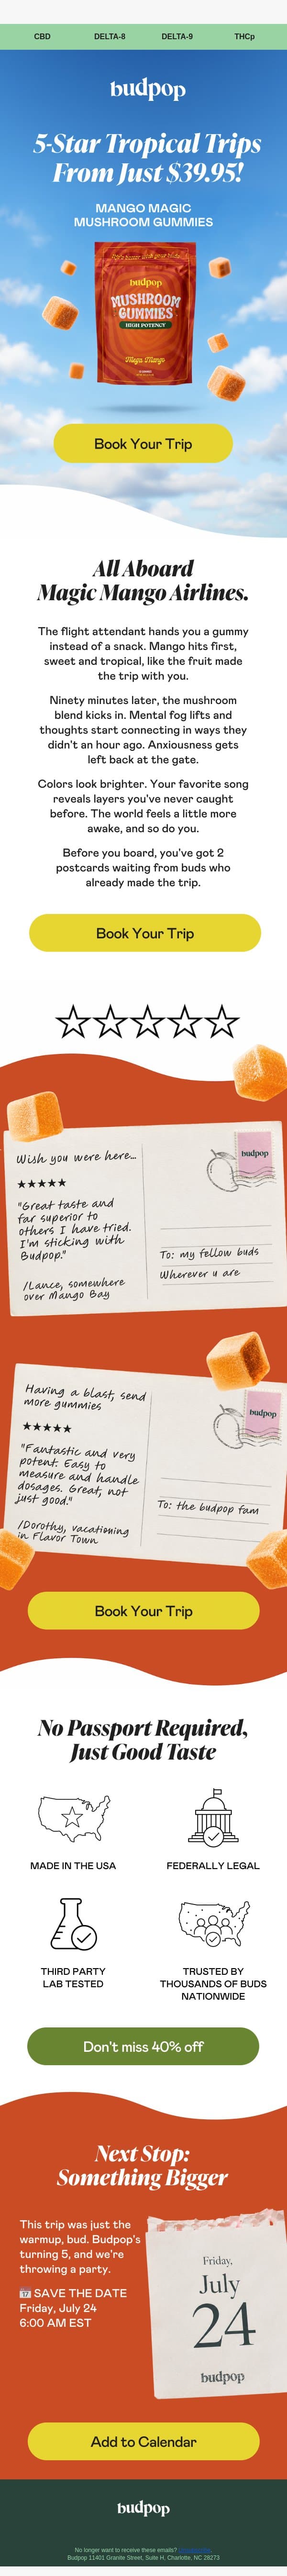 CBD DELTA-8 DELTA-9 THCp
budpop
5-Star Tropical Trips
From Just $39.95!
MANGO MAGIC
MUSHROOM GUMMIES
budpop
MUSHROOM
GUMMIES
HIGH POTENCY
Mega Mango
Book Your Trip
All Aboard
Magic Mango Airlines.
The flight attendant hands you a gummy
instead of a snack. Mango hits first,
sweet and tropical, like the fruit made
the trip with you.
Ninety minutes later, the mushroom
blend kicks in. Mental fog lifts and
thoughts start connecting in ways they
didn't an hour ago. Anxiousness gets
left back at the gate.
Colors look brighter. Your favorite song
reveals layers you've never caught
before. The world feels a little more
awake, and so do you.
Before you board, you've got 2
postcards waiting from buds who
already made the trip.
Book Your Trip
Wish you were here...
★★★★★
"Great taste and
far superior to
others I have tried.
I'm sticking with
Budpop."
/Lance, somewhere
over Mango Bay
budpop
To: my fellow buds
Wherever u are
Having a blast, send
more gummies
★★★★★
"Fantastic and very
potent. Easy to
measure and handle
dosages. Great, not
just good."
/Dorothy, vacationing
in Flavor Town
budpop
To: the budpop fam
Book Your Trip
No Passport Required,
Just Good Taste
MADE IN THE USA
FEDERALLY LEGAL
THIRD PARTY
LAB TESTED
TRUSTED BY
THOUSANDS OF BUDS
NATIONWIDE
Don't miss 40% off
Next Stop:
Something Bigger
This trip was just the
warmup, bud. Budpop's
turning 5, and we're
throwing a party.
📅 SAVE THE DATE
Friday, July 24
6:00 AM EST
Friday,
July
24
budpop
Add to Calendar
budpop
No longer want to receive these emails?
Budpop 11401 Granite Street, Suite H, Charlotte, NC 28273